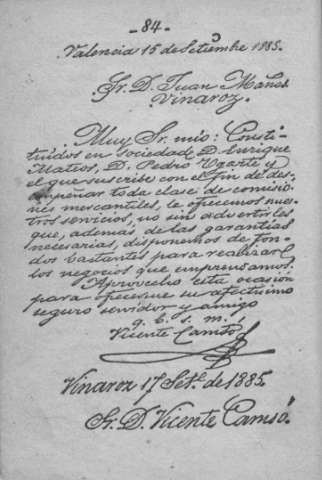 -84-
Valencia 15 de Setbre 1885.
Sr. D. Juan Maños
Vinaroz.
Muy Sr. mio: Consti-
tuidos en sociedad D. Enrique
Mateos, D. Pedro Ugarte y
el que suscribe con el fin de des-
empeñar toda clase de comisio-
nes mercantiles, le ofrecemos nues-
tros servicios, no sin advertirles
que, además de las garantias
necesarias, disponemos de fon-
dos bastantes para realizar
los negocios que emprendamos.
Aprovecho esta ocasión
para ofrecerme su afectisimo
seguro servidor y amigo
q. b. s. m.,
Vicente Camisó
Vinaroz 17 Set.e de 1885.
Sr. D. Vicente Camisó.